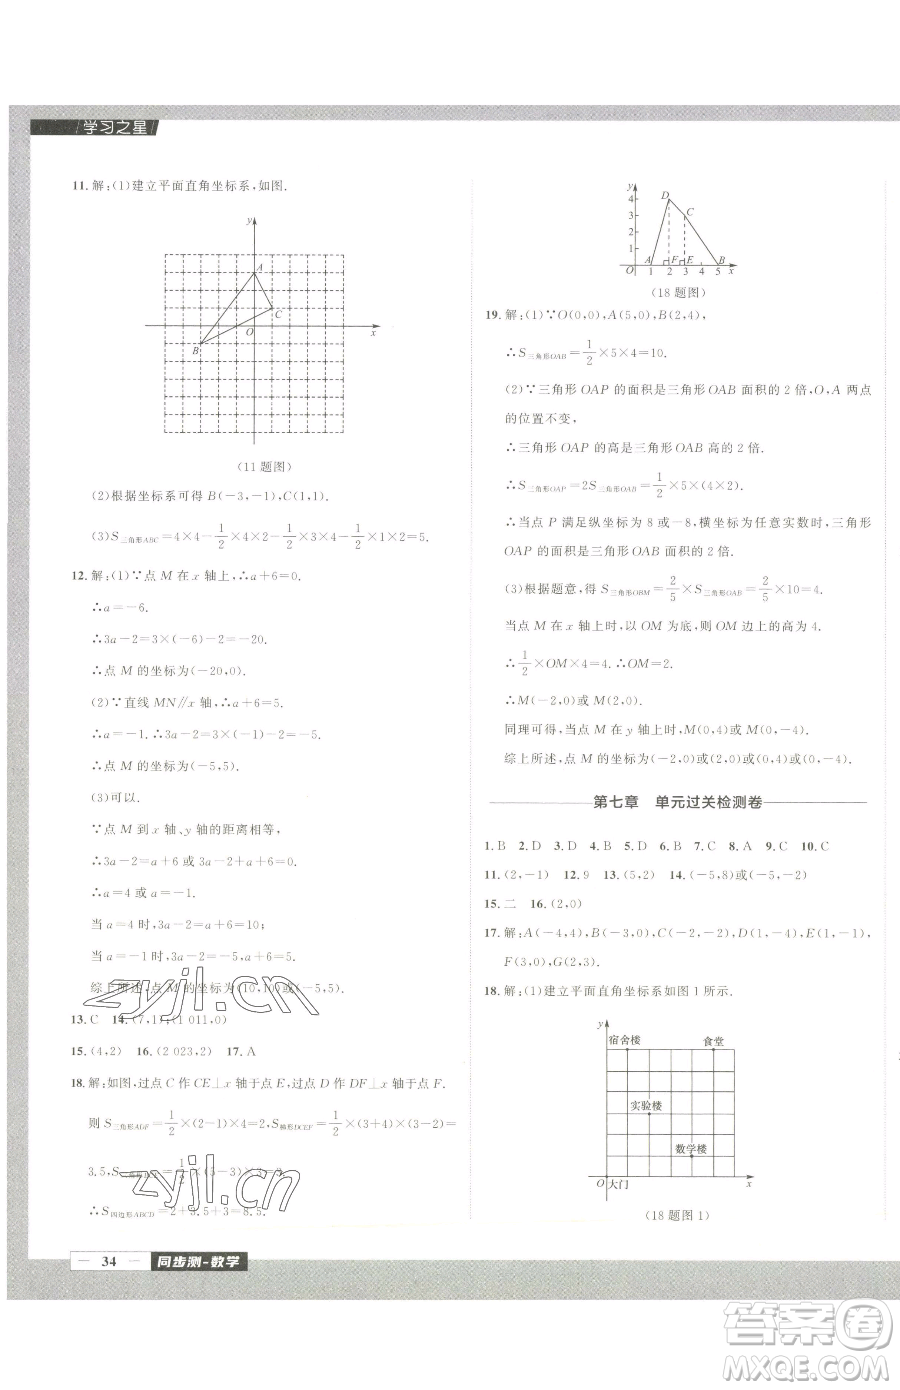 学习之星
11. 解:(1)建立平面直角坐标系,如图.
y
A
C
O
x
B
(11题图)
(2)根据坐标系可得 B(-3,-1),C(1,1).
(3)S三角形ABC=4×4-1/2×4×2-1/2×3×4-1/2×1×2=5.
12. 解:(1)∵点 M 在 x 轴上,∴a+6=0.
∴a=-6.
∴3a-2=3×(-6)-2=-20.
∴点 M 的坐标为(-20,0).
(2)∵直线 MN∥x 轴,∴a+6=5.
∴a=-1. ∴3a-2=3×(-1)-2=-5.
∴点 M 的坐标为(-5,5).
(3)可以.
∵点 M 到 x 轴、y 轴的距离相等,
∴3a-2=a+6 或 3a-2+a+6=0.
∴a=4 或 a=-1.
当 a=4 时,3a-2=a+6=10;
当 a=-1 时,3a-2=-5,a+6=5.
综上所述,点 M 的坐标为(10,10)或(-5,5).
13. C 14. (7,1);(1 011,0)
15. (4,2) 16. (2 023,2) 17. A
18. 解:如图,过点 C 作 CE⊥x 轴于点 E,过点 D 作 DF⊥x 轴于点 F.
则 S三角形ADF=1/2×(2-1)×4=2,S梯形DCEF=1/2×(3+4)×(3-2)=
3.5,S三角形BCE=1/2×(5-3)×3=3.
∴S四边形ABCD=2+3.5+3=8.5.
zyjl.cn
zyjl.cn
34
同步测-数学
y
4
3
2
1
D
C
A
F
E
B
O
1 2 3 4 5 x
(18题图)
19. 解:(1)∵O(0,0),A(5,0),B(2,4),
∴S三角形OAB=1/2×5×4=10.
(2)∵三角形 OAP 的面积是三角形 OAB 面积的 2 倍,O,A 两点
的位置不变,
∴三角形 OAP 的高是三角形 OAB 高的 2 倍.
∴S三角形OAP=2S三角形OAB=1/2×5×(4×2).
∴当点 P 满足纵坐标为 8 或-8,横坐标为任意实数时,三角形
OAP 的面积是三角形 OAB 面积的 2 倍.
(3)根据题意,得 S三角形OBM=2/5×S三角形OAB=2/5×10=4.
当点 M 在 x 轴上时,以 OM 为底,则 OM 边上的高为 4.
∴1/2×OM×4=4. ∴OM=2.
∴M(-2,0)或 M(2,0).
同理可得,当点 M 在 y 轴上时,M(0,4)或 M(0,-4).
综上所述,点 M 的坐标为(-2,0)或(2,0)或(0,4)或(0,-4).
第七章 单元过关检测卷
1. B 2. D 3. D 4. B 5. D 6. B 7. C 8. A 9. C 10. C
11. (2,-1) 12. 9 13. (5,2) 14. (-5,8)或(-5,-2)
15. 二 16. (2,0)
17. 解:A(-4,4),B(-3,0),C(-2,-2),D(1,-4),E(1,-1),
F(3,0),G(2,3).
18. 解:(1)建立平面直角坐标系如图 1 所示.
y
宿舍楼
食堂
实验楼
数学楼
O 大门 x
(18题图1)
答案圈
MXQE.COM